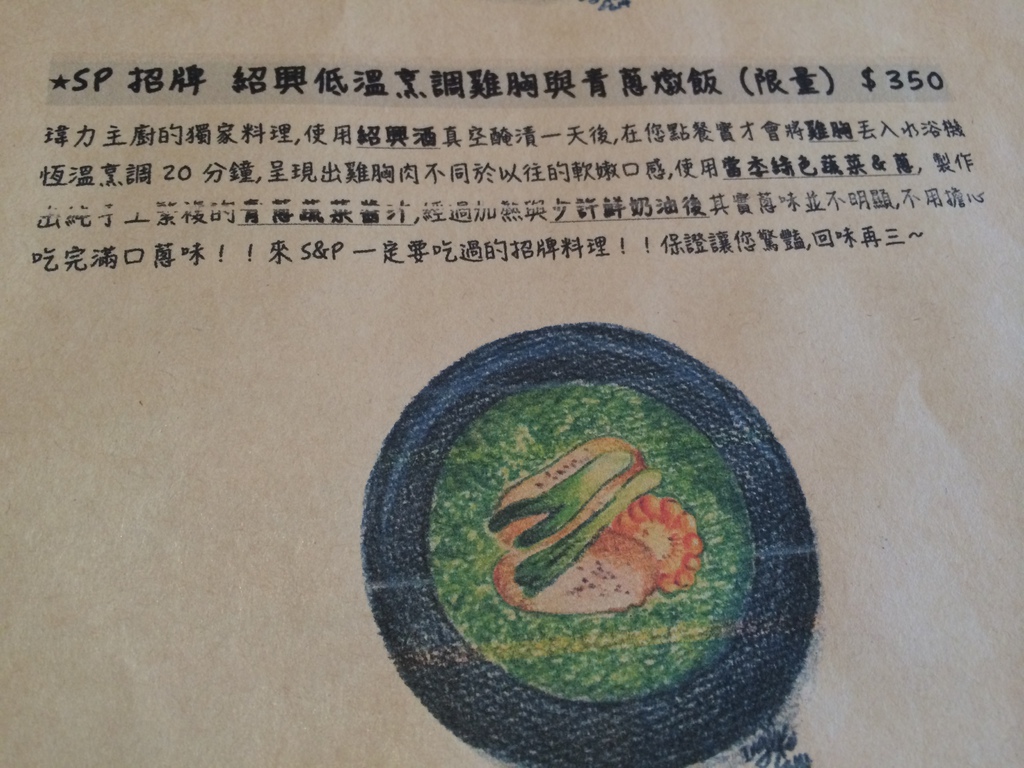 ★SP 招牌 紹興低溫烹調雞胸與青蔥燉飯 (限量) $350
瑋力主廚的獨家料理,使用紹興酒真空醃漬一天後,在您點餐實才會將雞胸丟入水浴機
恆溫烹調 20 分鐘,呈現出雞胸肉不同於以往的軟嫩口感,使用當季綠色蔬菜&蔥, 製作
出純手工繁複的青蔥蔬菜醬汁,經過加熱與少許鮮奶油後其實蔥味並不明顯,不用擔心
吃完滿口蔥味！！來 S&P 一定要吃過的招牌料理！！保證讓您驚豔,回味再三~